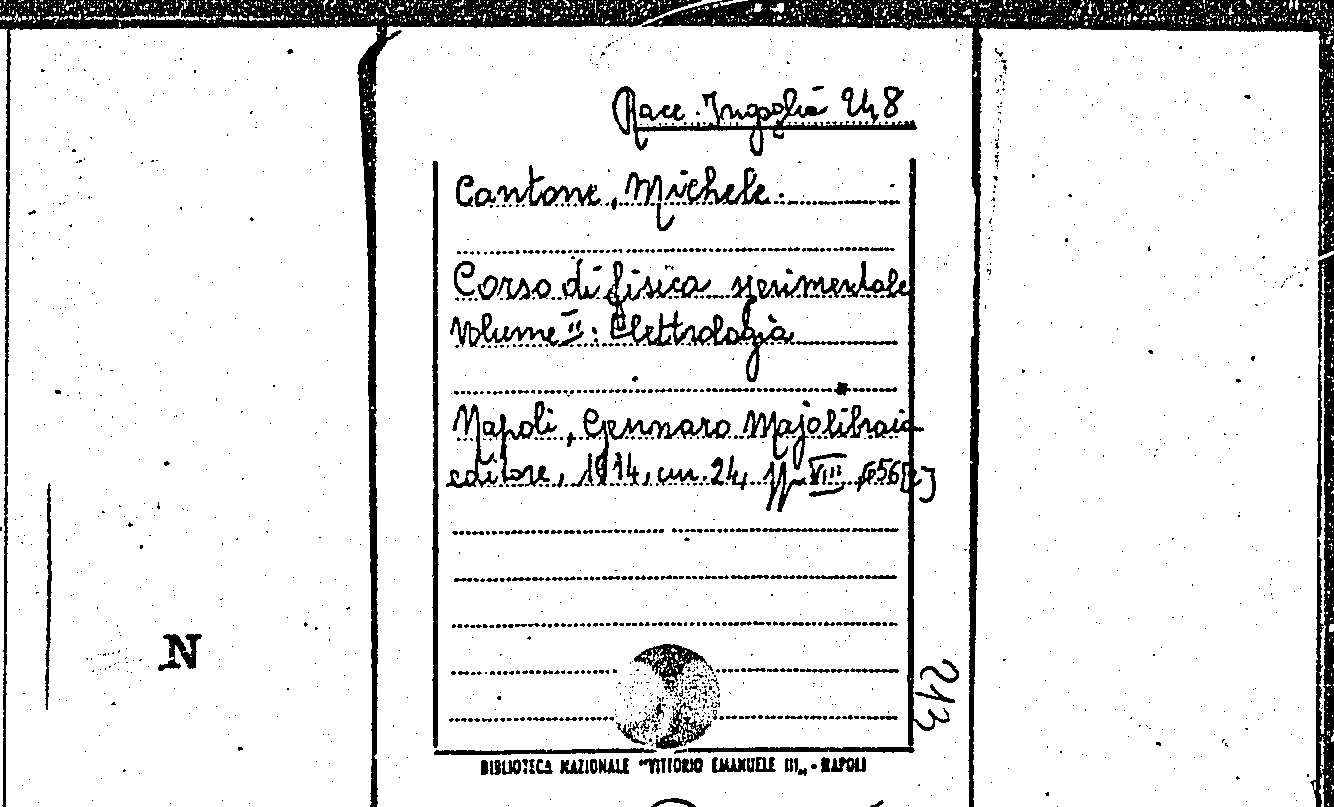 Racc. Ingoglia 248
Cantone, Michele.
Corso di fisica sperimentale
Volume II: Elettrologia
Napoli, Gennaro Majo libraio
editore, 1914, cm. 24, pp. VIII, 656 [2]
N
213
BIBLIOTECA NAZIONALE "VITTORIO EMANUELE III„ - NAPOLI